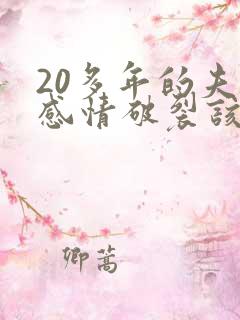 20多年的夫
感情破裂该
卿蒿